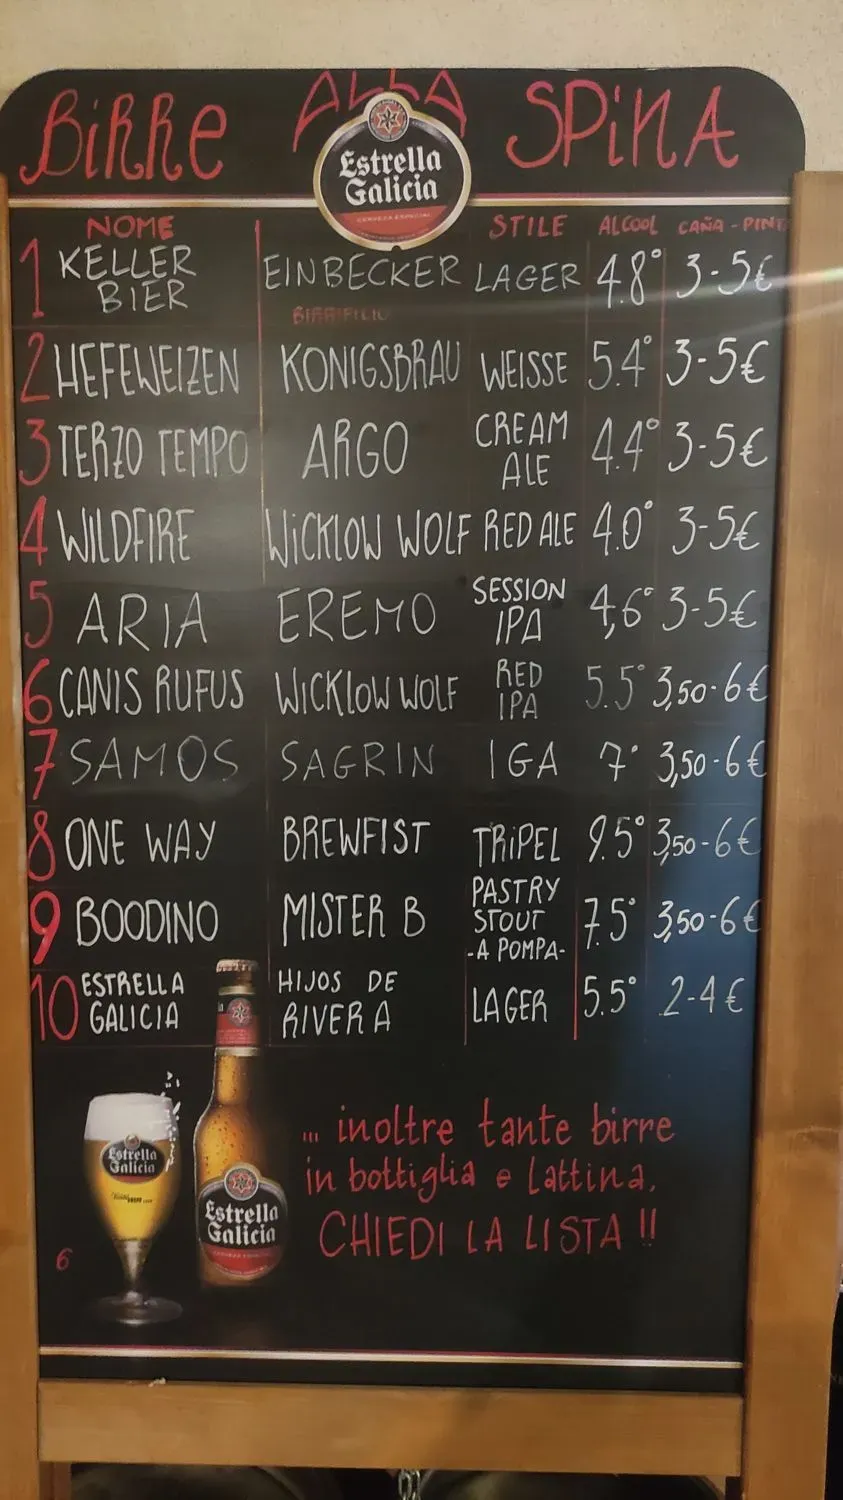 BIRRE ALLA SPINA
Estrella
Galicia
CERVEZA ESPECIAL
NOME STILE ALCOOL CAÑA - PINT
1 KELLER BIER EINBECKER LAGER 4.8° 3-5€
BIRRIFICIO
2 HEFEWEIZEN KONIGSBRAU WEISSE 5.4° 3-5€
3 TERZO TEMPO ARGO CREAM ALE 4.4° 3-5€
4 WILDFIRE WICKLOW WOLF RED ALE 4.0° 3-5€
5 ARIA EREMO SESSION IPA 4,6° 3-5€
6 CANIS RUFUS WICKLOW WOLF RED IPA 5.5° 3,50-6€
7 SAMOS SAGRIN IGA 7° 3,50-6€
8 ONE WAY BREWFIST TRIPEL 9.5° 3,50-6€
9 BOODINO MISTER B PASTRY STOUT -A POMPA- 7.5° 3,50-6€
10 ESTRELLA GALICIA HIJOS DE RIVERA LAGER 5.5° 2-4€
... inoltre tante birre
in bottiglia e lattina.
CHIEDI LA LISTA !!
Estrella
Galicia
Estrella
Galicia
6